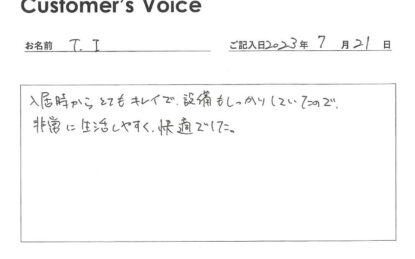 Customer's Voice
お名前 T. I ご記入日2023年 7 月 21 日
入居時から とても キレイで、設備もしっかりしていたので、
非常に生活しやすく、快適でした。